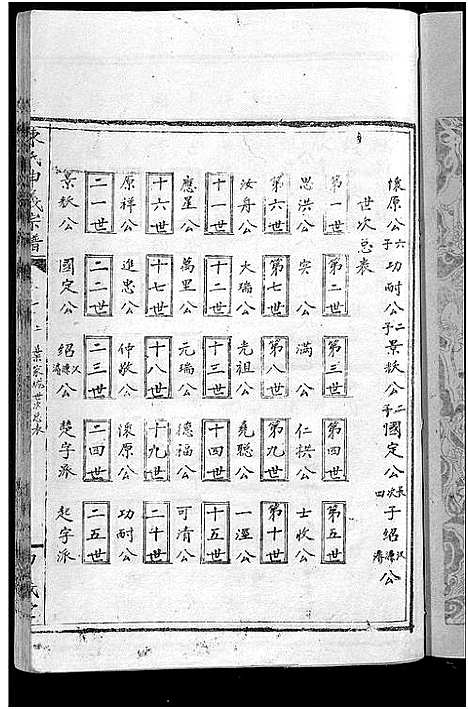 懷原公六子功耐公二子景欽公二子國定公長次四子紹漢漂濬公
世次总表
第一世 第二世 第三世 第四世 第五世
思洪公 实公 满公 仁栱公 士收公
第六世 第七世 第八世 第九世 第十世
汝舟公 大瑞公 光祖公 堯聪公 一湮公
十一世 十二世 十三世 十四世 十五世
應星公 萬里公 元瑞公 德福公 可清公
十六世 十七世 十八世 十九世 二十世
原祥公 進忠公 仲敬公 懷原公 功耐公
二一世 二二世 二三世 二四世 二五世
景欽公 國定公 紹漢漂濬公 楚字派 起字派